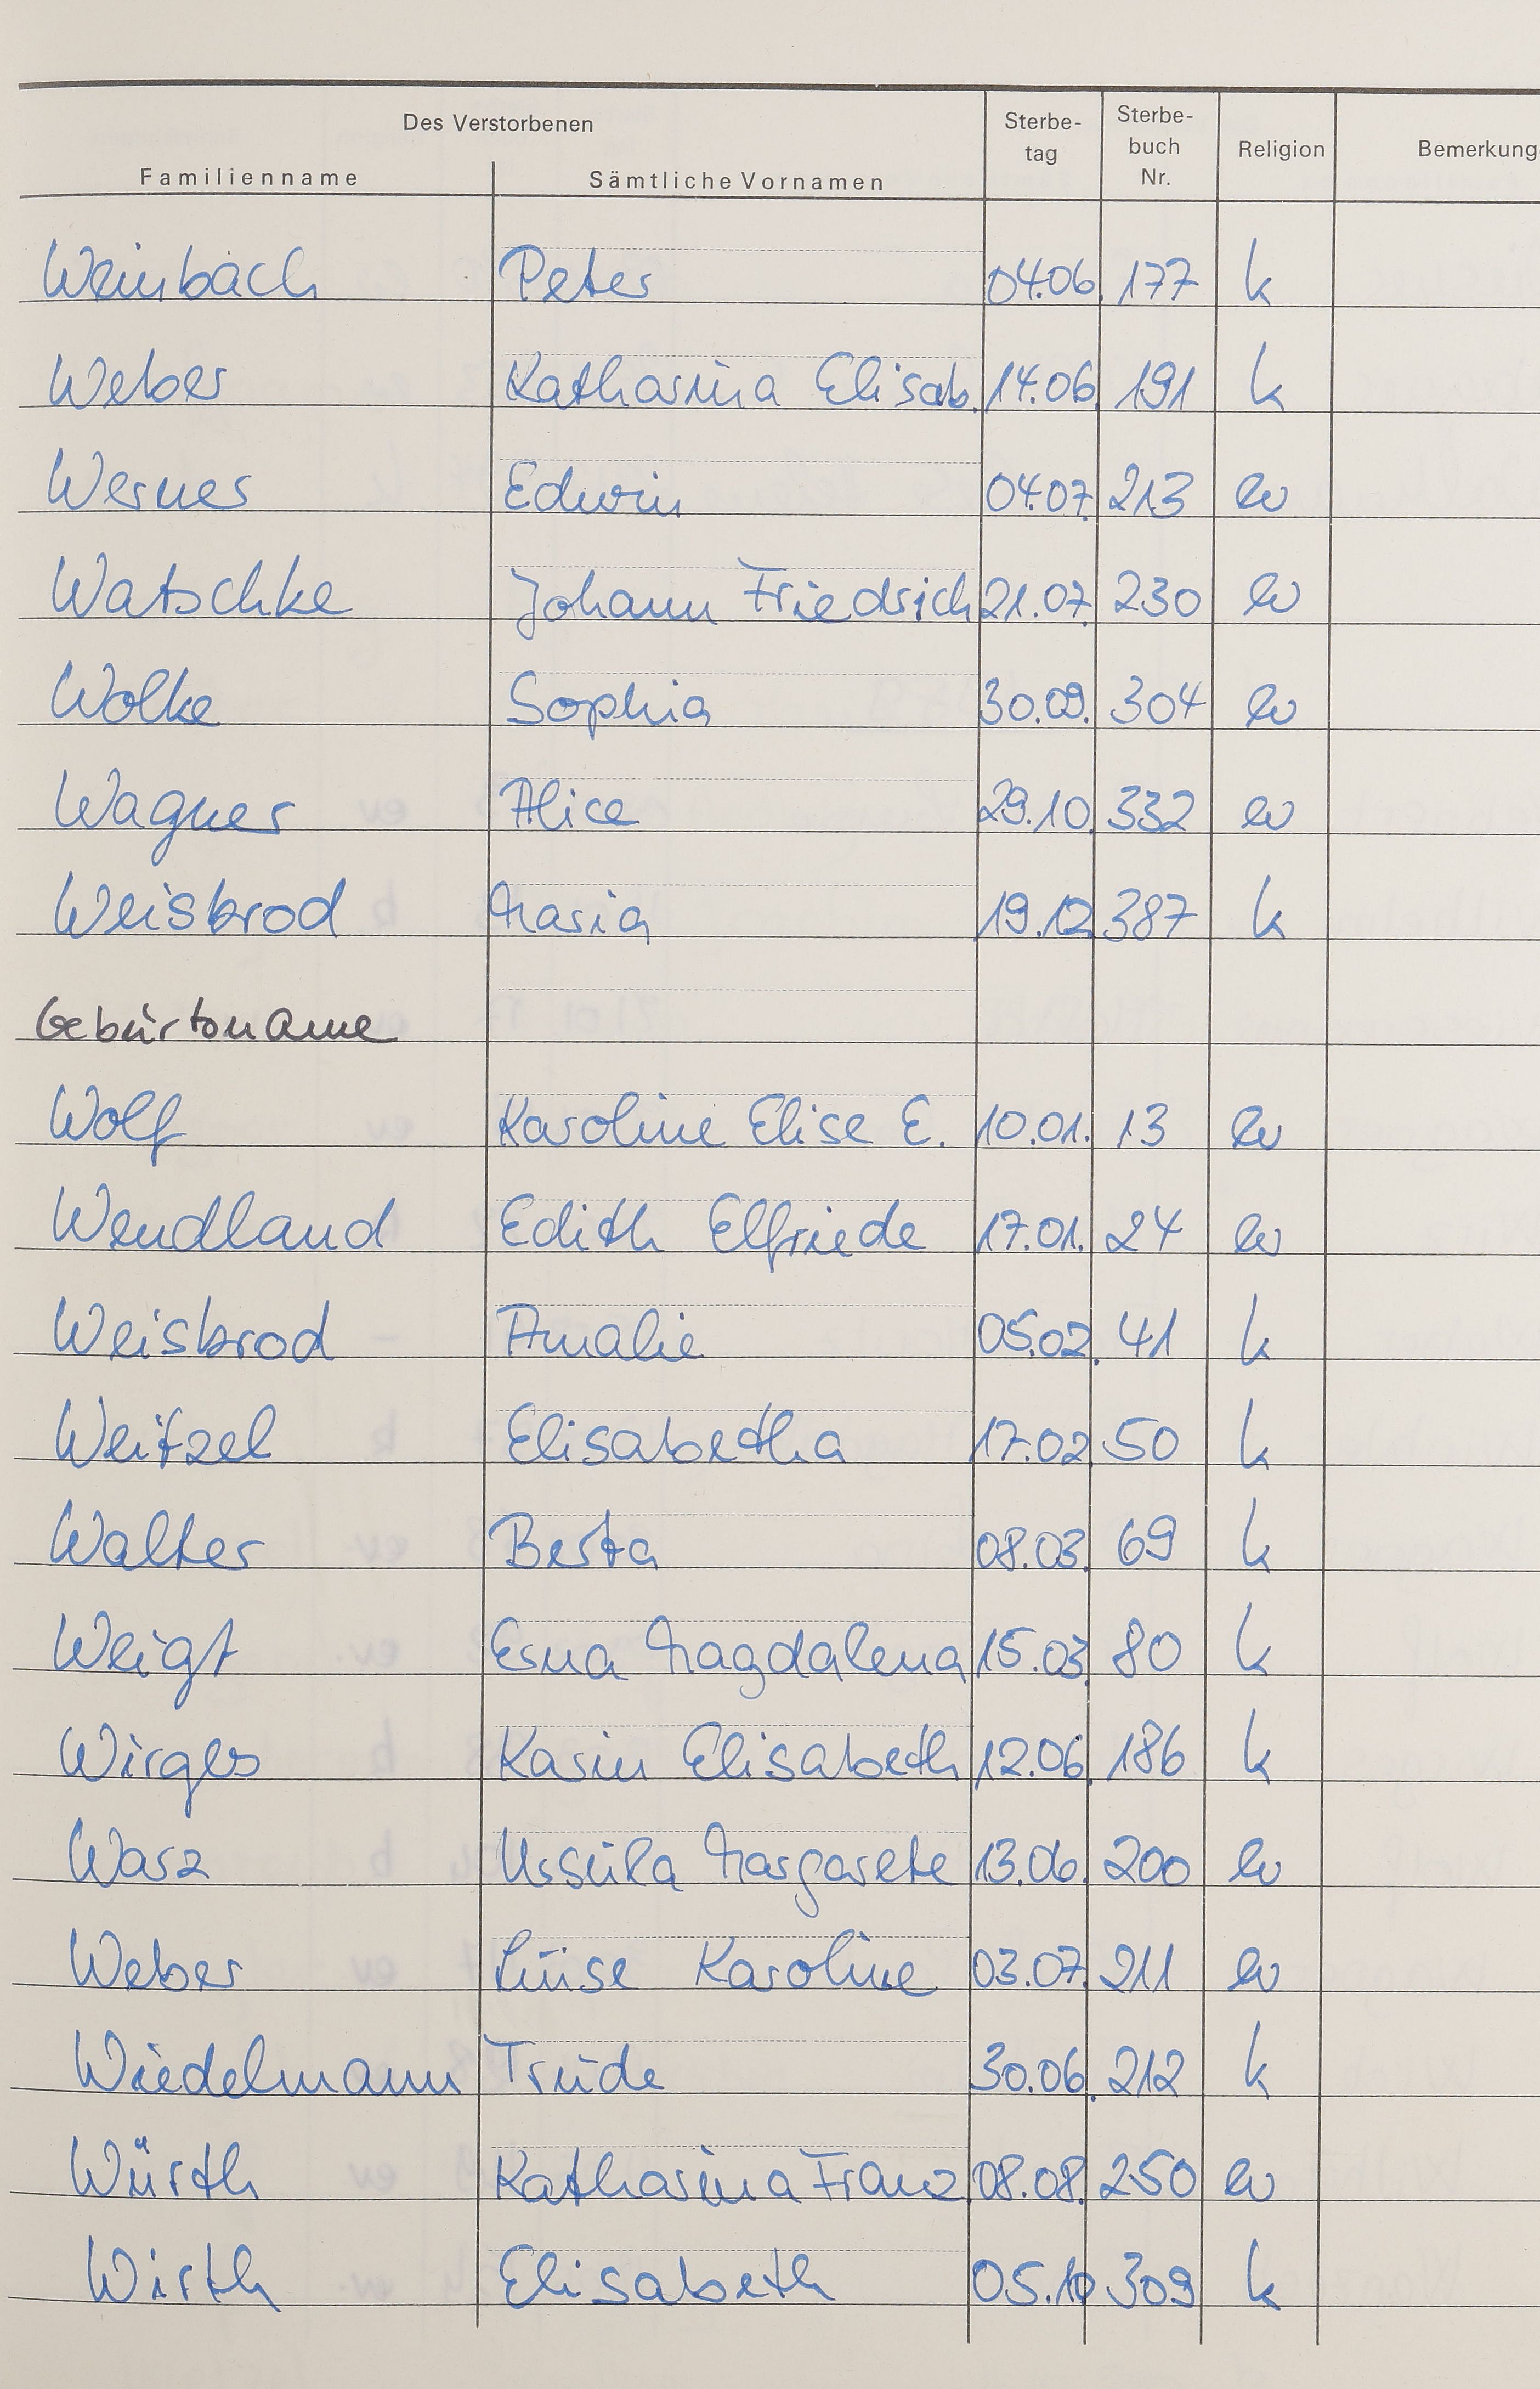 Des Verstorbenen
Familienname Sämtliche Vornamen Sterbe-tag Sterbe-buch Nr. Religion Bemerkung
Weinbach Peter 04.06. 177 k
Weber Katharina Elisab. 14.06. 191 k
Werner Edwin 04.07. 213 ev
Watschke Johann Friedrich 21.07. 230 ev
Wolke Sophia 30.09. 304 ev
Wagner Alice 29.10. 332 ev
Weisbrod Maria 19.12. 387 k
Geburtsname
Wolf Karoline Elise E. 10.01. 13 ev
Wendland Edith Elfriede 17.01. 24 ev
Weisbrod Amalie 05.02. 41 k
Weitzel Elisabetha 17.02. 50 k
Walter Berta 08.03. 69 k
Weigt Erna Magdalena 15.03. 80 k
Wirges Karin Elisabeth 12.06. 186 k
Warz Ursula Margarete 13.06. 200 ev
Weber Luise Karoline 03.07. 211 ev
Wiedelmann Trude 30.06. 212 k
Würth Katharina Franz. 08.08. 250 ev
Wirth Elisabeth 05.10 309 k